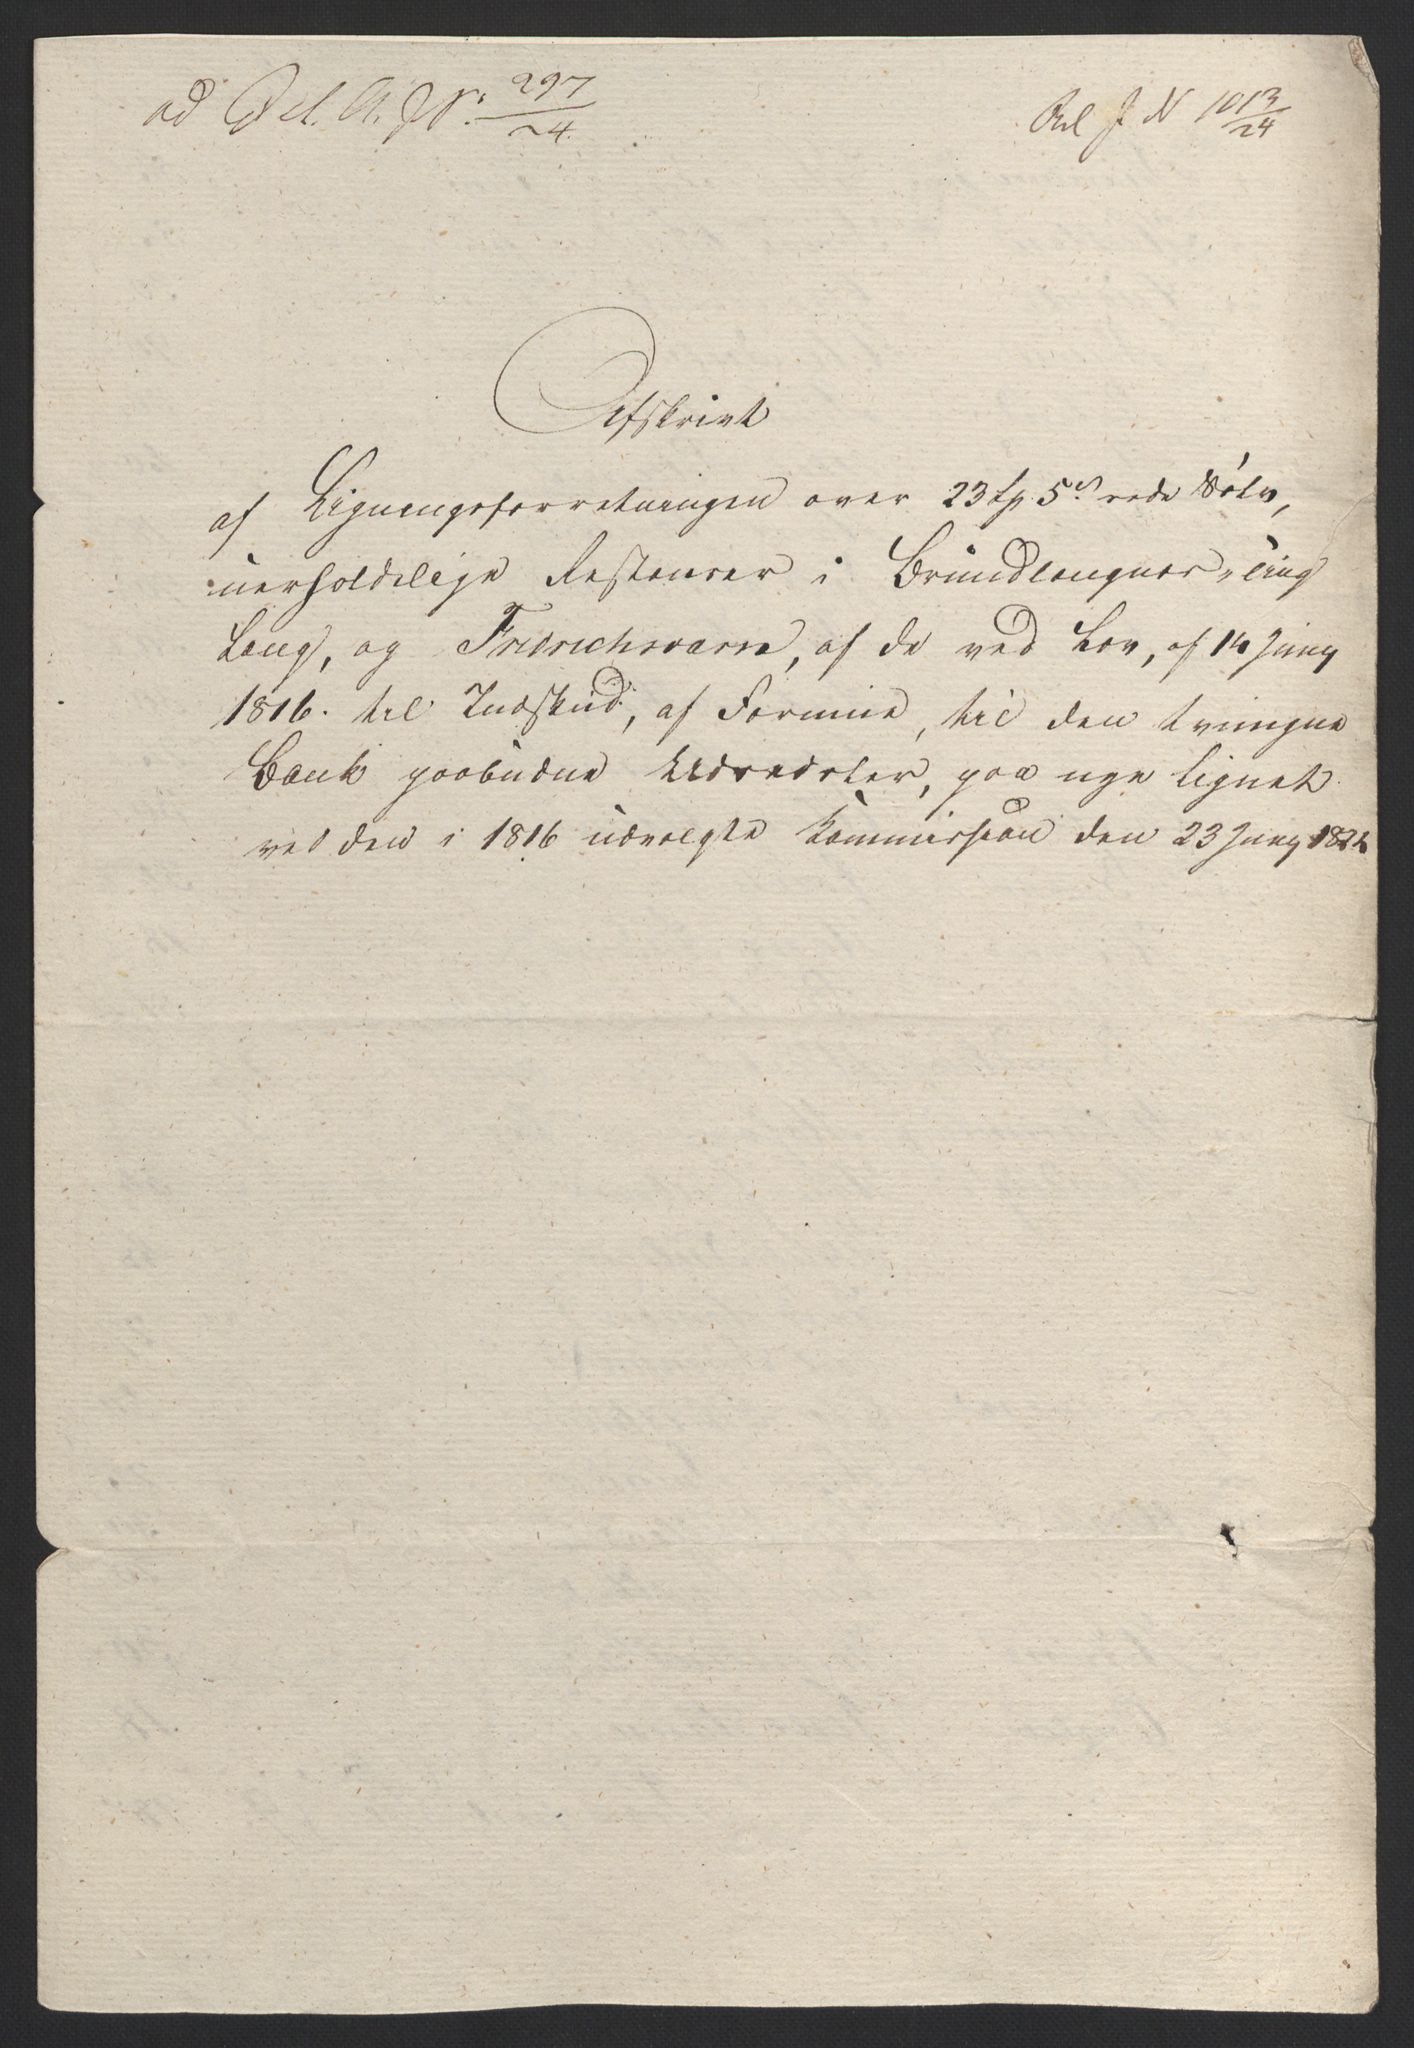 ad Del. A. J. N: 297/24
Rel J. N 1013/24
Afskrivt
af Ligningsforretningen over 23 Sp 5 s rede Sølv,
uerholdelige Restancer i Brundlaugnes Ting
Laug, og Fridrichsværn, af de ved Lov, af 14 Juny
1816. til Indskud, af Formue, til den tvungne
Bank paabudne Udredsler, paa nye lignet
ved den i 1816 udvalgte Kommission den 23 Juny 1824